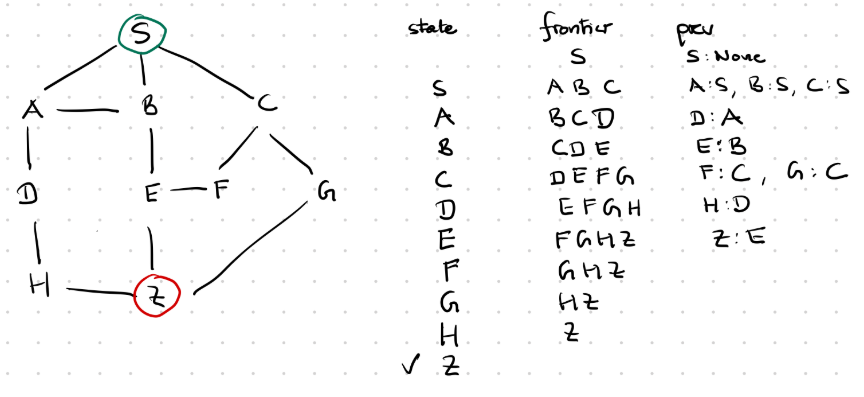 S
A B C
D E F G
H Z
state frontier prev
S S:None
S A B C A:S, B:S, C:S
A B C D D:A
B C D E E:B
C D E F G F:C, G:C
D E F G H H:D
E F G H Z Z:E
F G H Z
G H Z
H Z
✓ Z